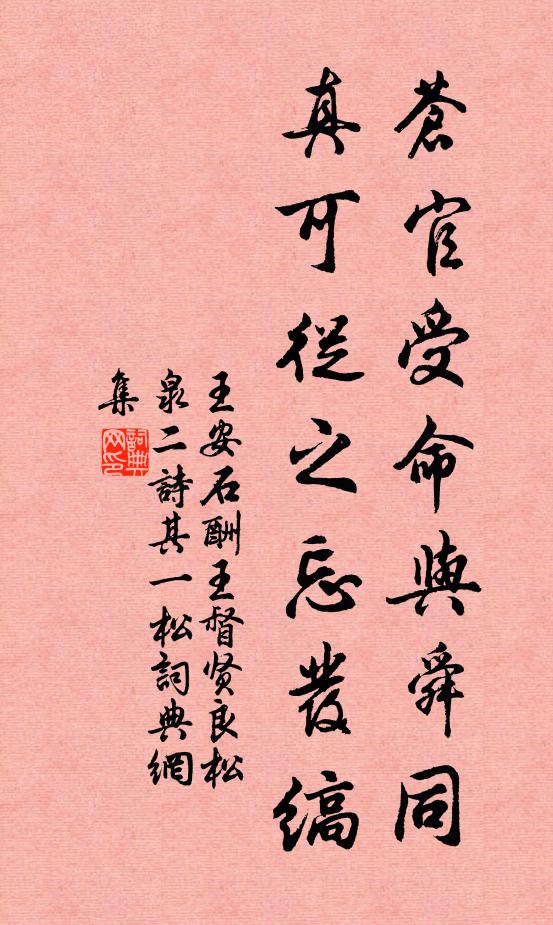 蒼官受命與舜同
真可從之忘髮縞
王安石酬王督贤良松
泉二詩其一松詞典網
集
詞典網印